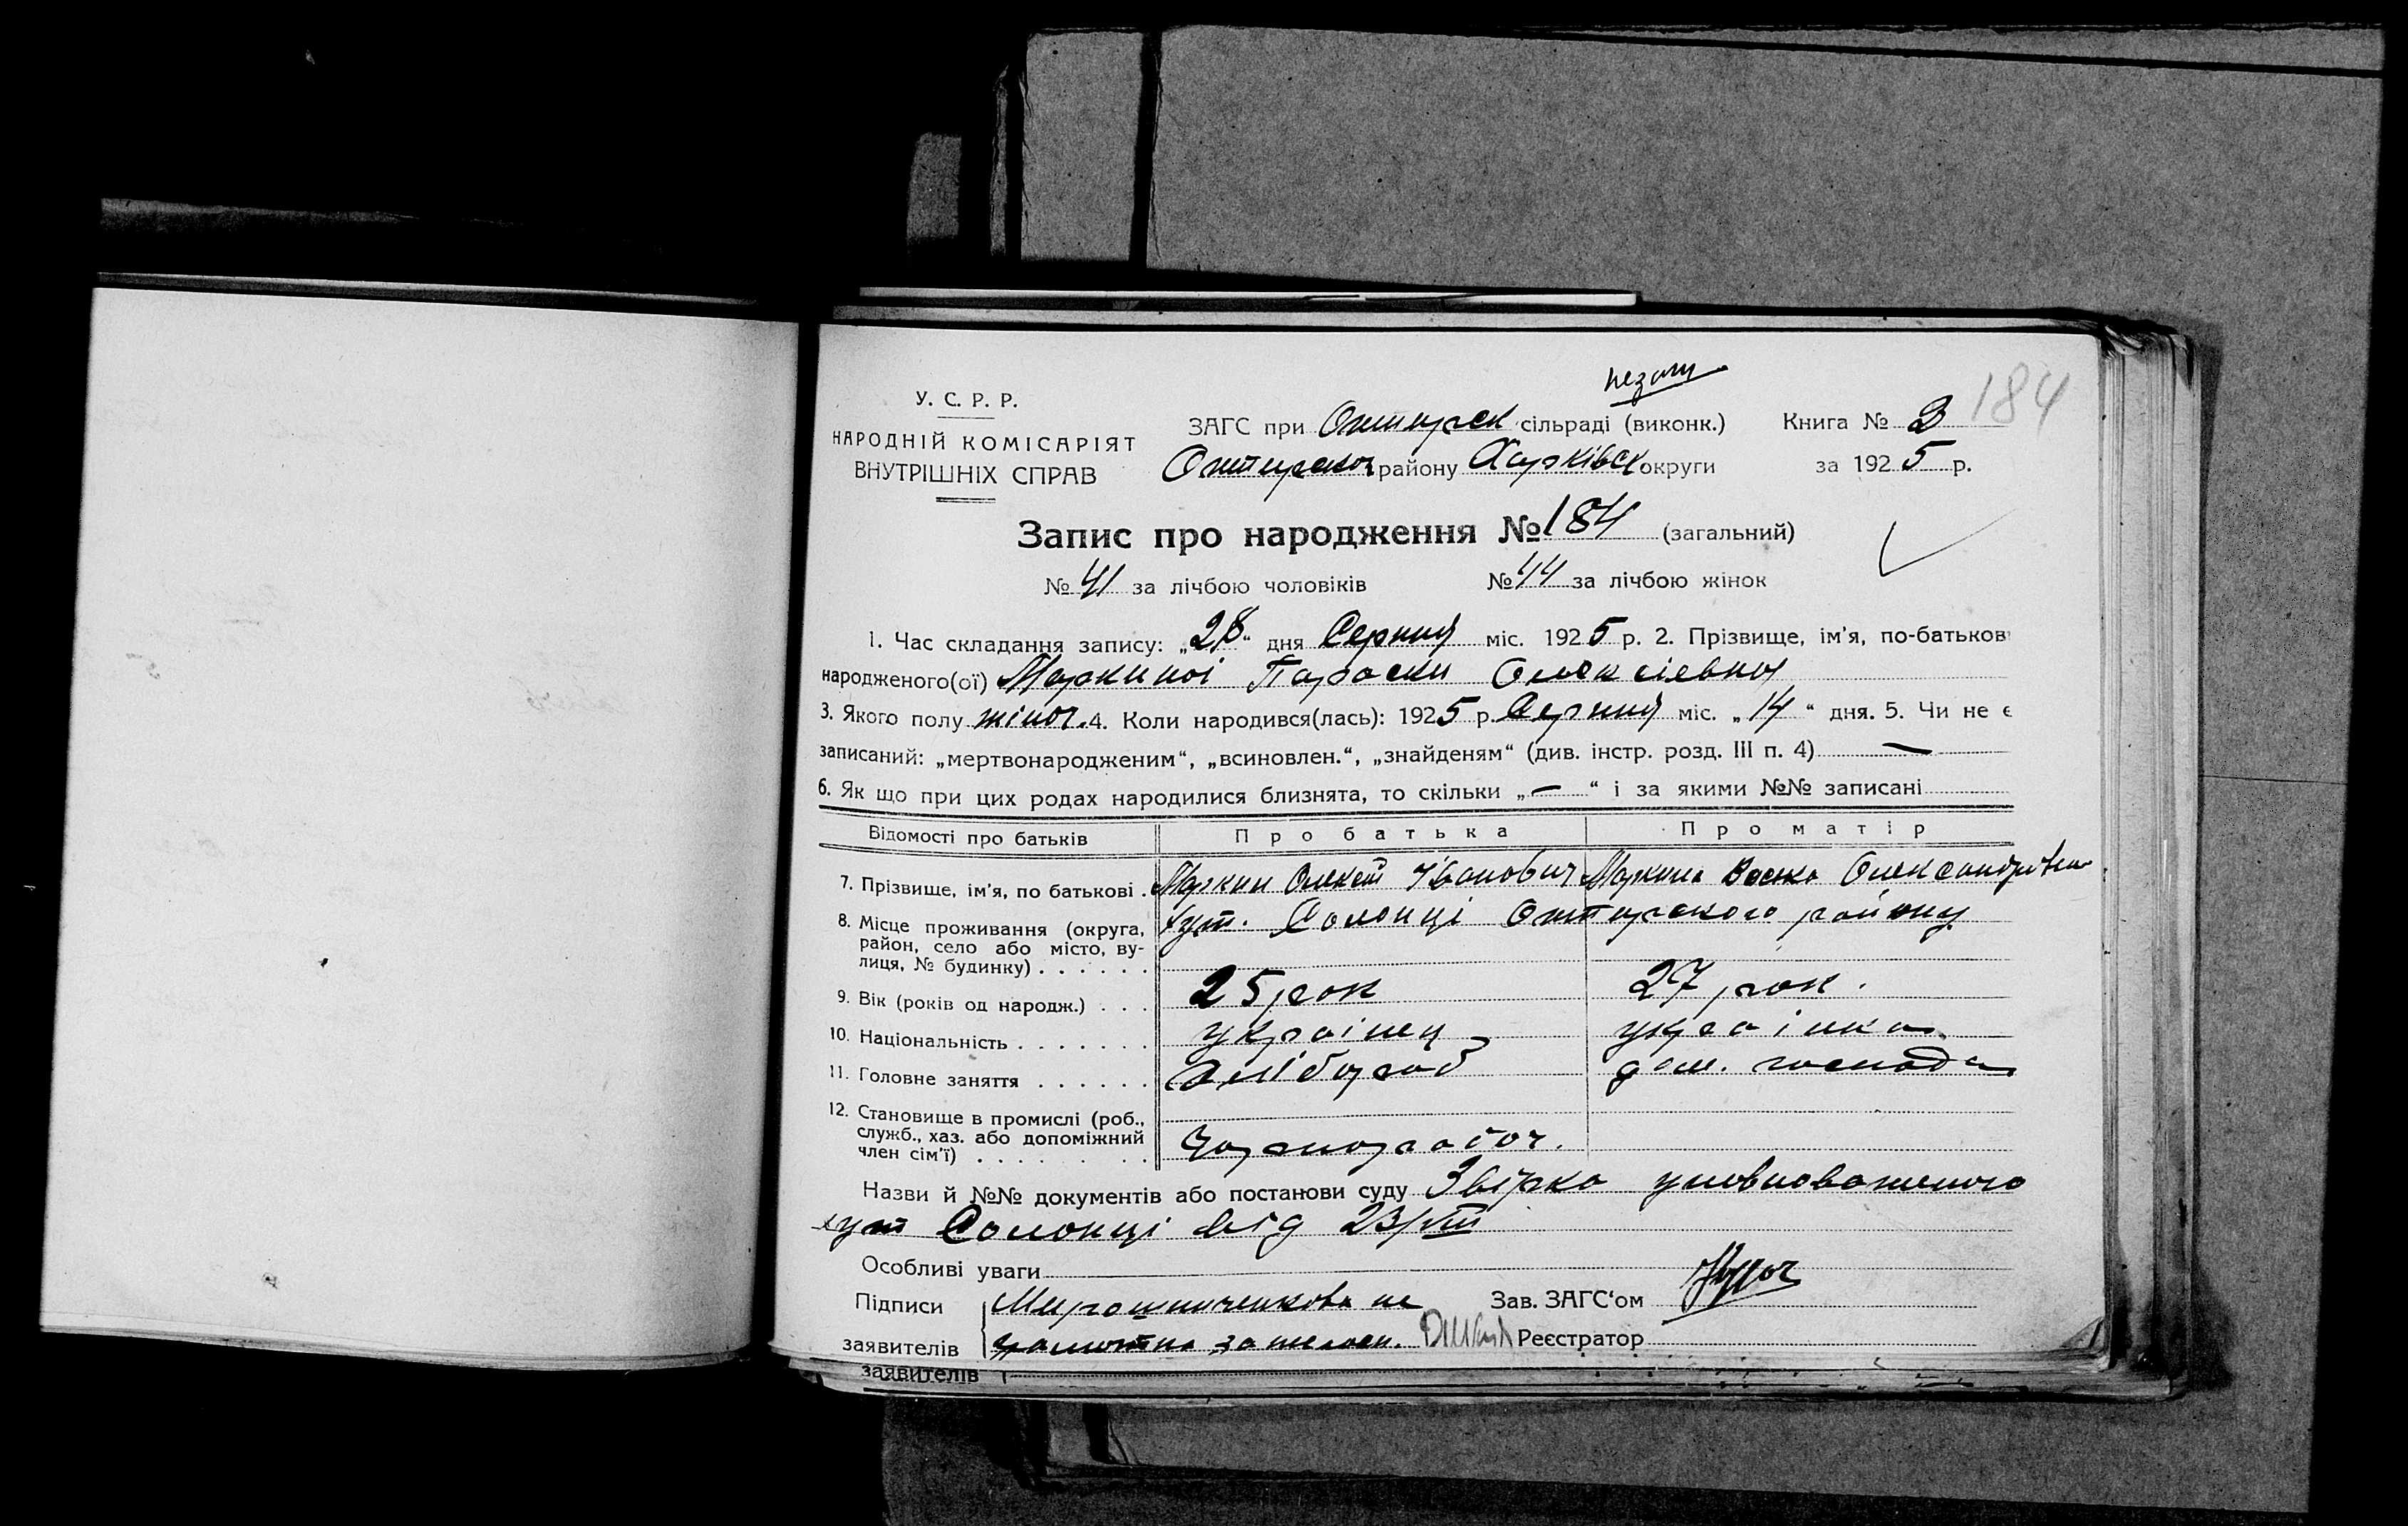 184
незам
У. С. Р. Р.
НАРОДНІЙ КОМІСАРІЯТ
ВНУТРІШНІХ СПРАВ
ЗАГС при Охтирск сільраді (виконк.) Книга № 3
Охтирськ району Харківск округи за 1925 р.
Запис про народження № 184 (загальний)
№ 41 за лічбою чоловіків № 44 за лічбою жінок
1. Час складання запису: „28“ дня Серпня міс. 1925 р. 2. Прізвище, ім'я, по-батькові
народженого(ої) Маркиної Параски Олексіевна
3. Якого полу жіноч. 4. Коли народився(лась): 1925 р. Серпня міс. „14“ дня. 5. Чи не є
записаний: „мертвонародженим“, „всиновлен.“, „знайденям“ (див. інстр. розд. III п. 4) —
6. Як що при цих родах народилися близнята, то скільки „—“ і за якими №№ записані
Відомості про батьків Про батька Про матір
7. Прізвище, ім'я, по батькові . Маркин Олексій Іванович Маркина Олександрівна
8. Місце проживання (округа, район, село або місто, вулиця, № будинку) . . . . . . хут. Солонці Охтирского району
9. Вік (років од народж.) . . . 25 рок 27 рок.
10. Національність . . . . . . . українец українка
11. Головне заняття . . . . . . хлібороб дом. господа
12. Становище в промислі (роб.,
служб., хаз. або допоміжний
член сім'ї) . . . . . . . чорнорабоч.
Назви й №№ документів або постанови суду Звірка уповноваженого
хут Солонці від 23/VIII
Особливі уваги
Підписи Мирошниченкова не Зав. ЗАГС'ом
заявителів грамотна за Реєстратор
заявителів